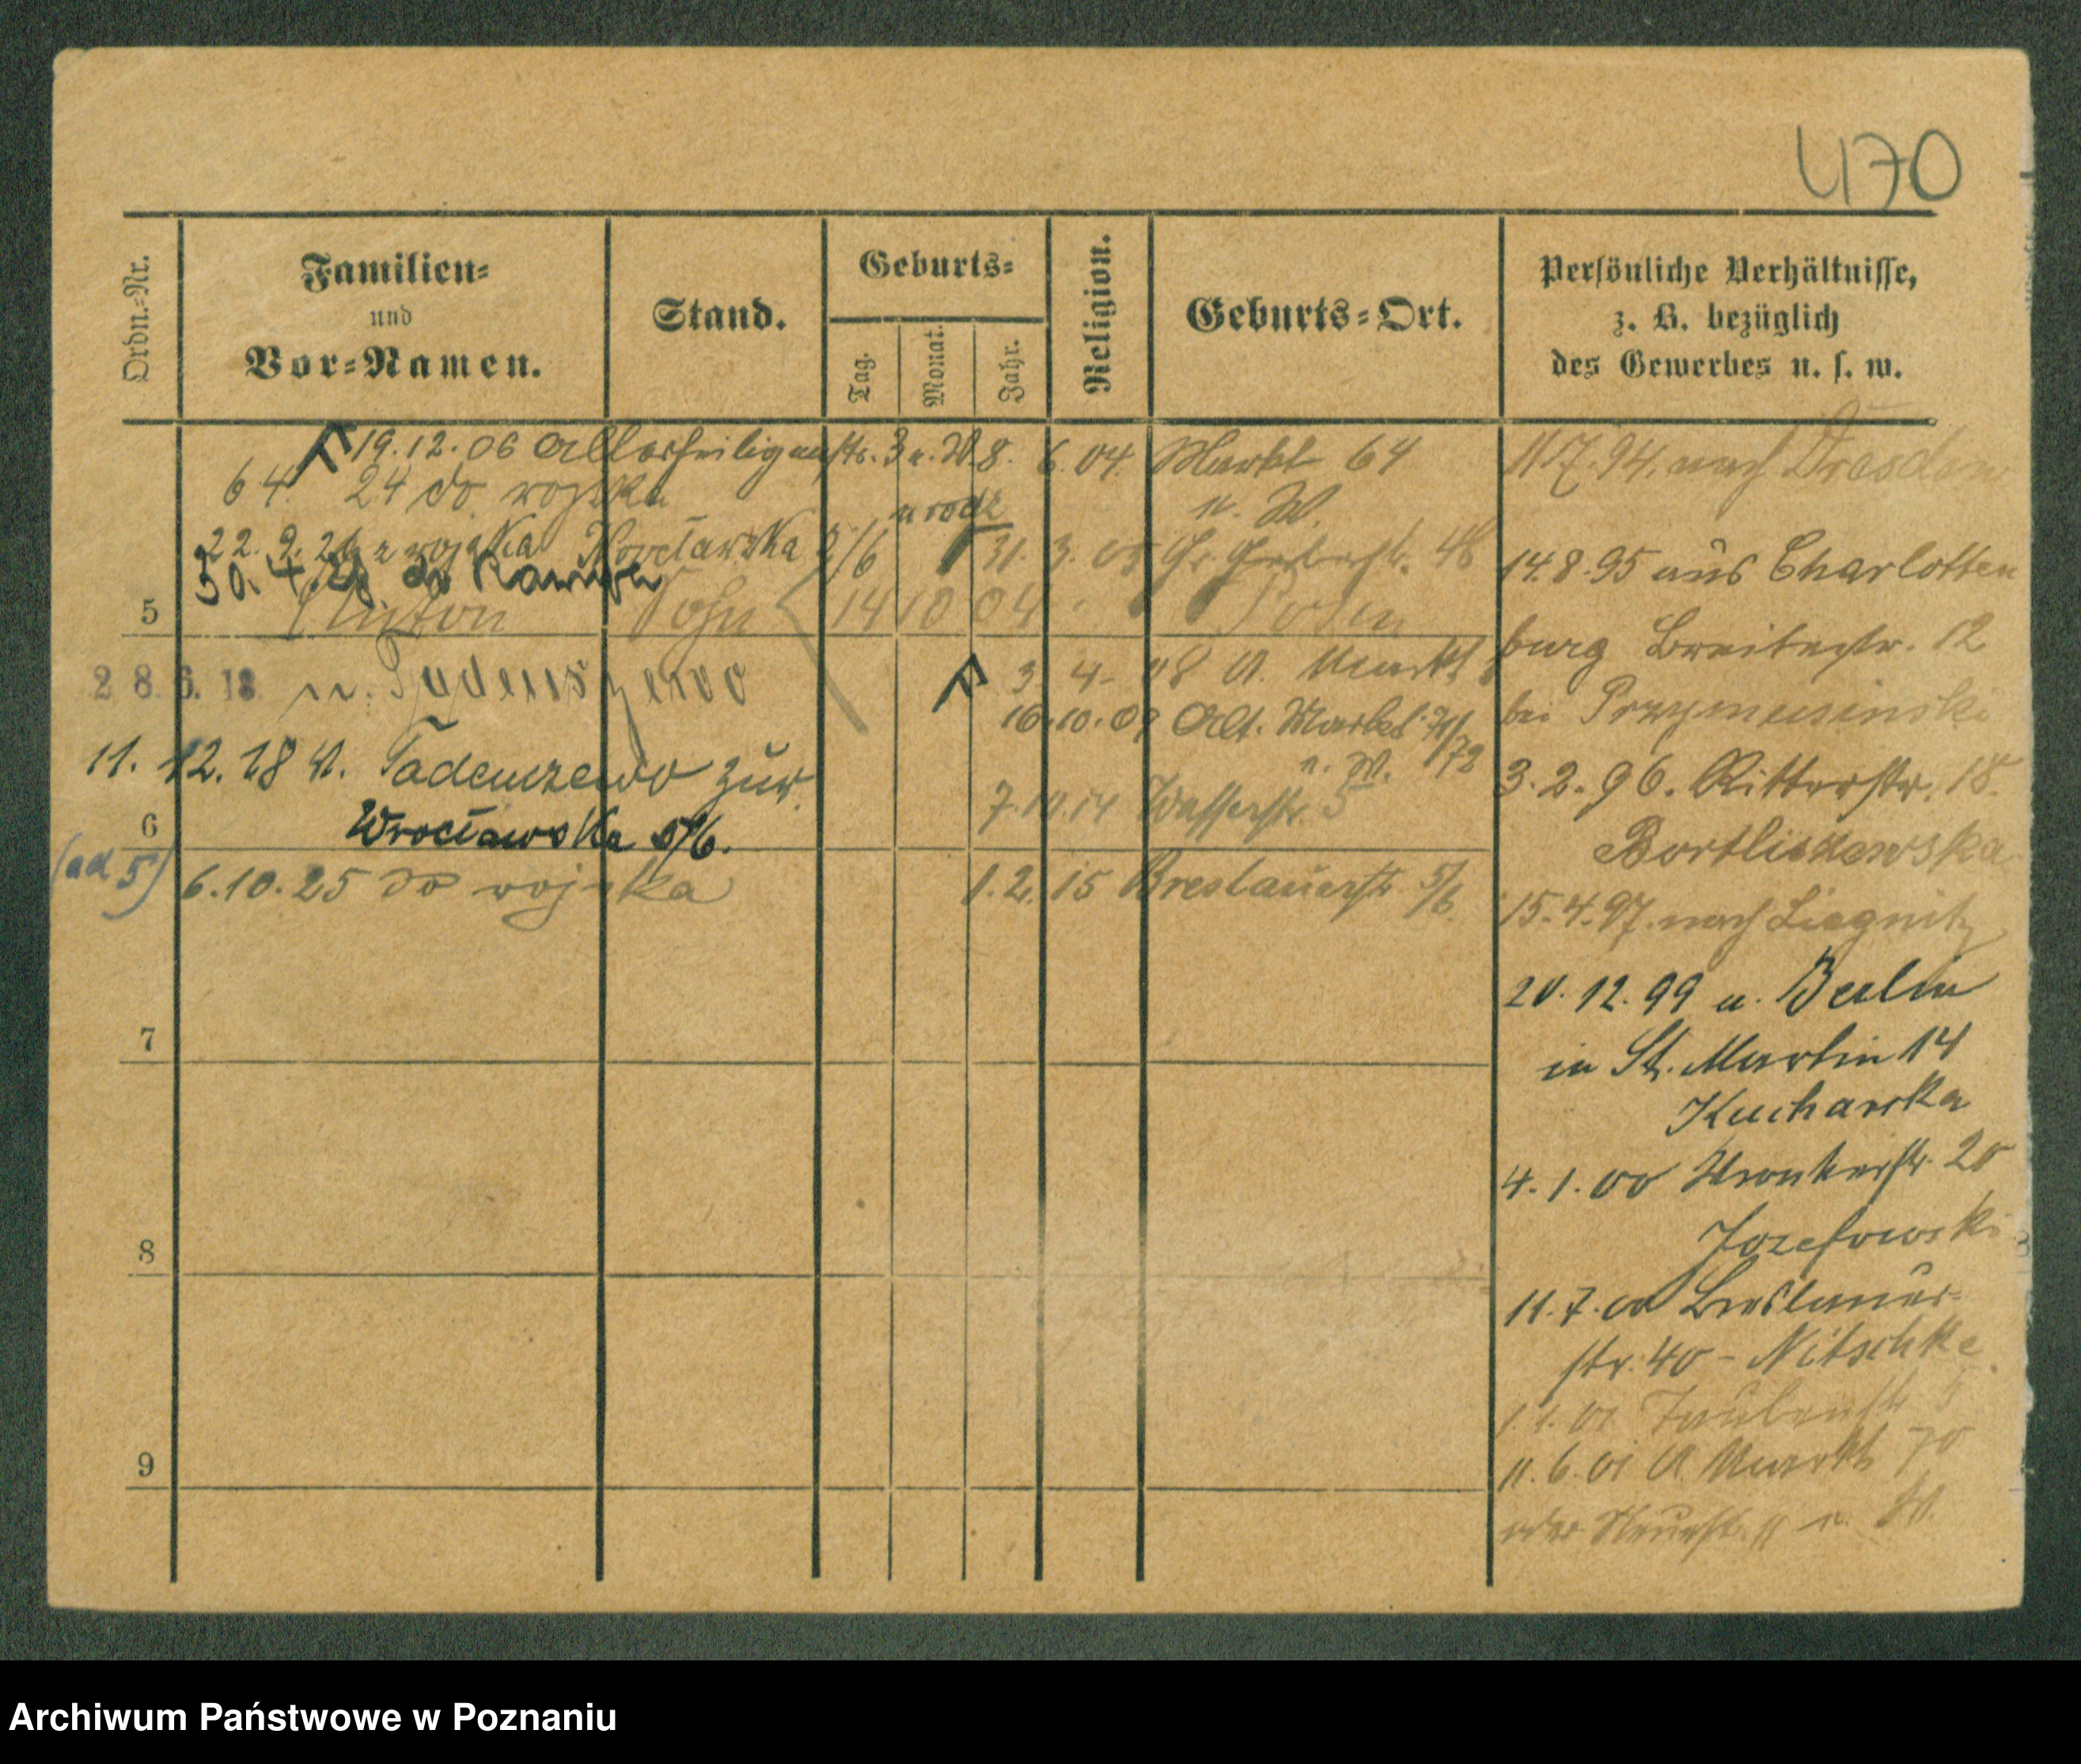 470
Ordn.=Nr.
Familien=
und
Vor=Namen.
Stand.
Geburts=
Tag.
Monat.
Jahr.
Religion.
Geburts=Ort.
Persönliche Verhältnisse,
z. B. bezüglich
des Gewerbes u. s. w.
19.12.06 Allerheiligenstr. 3 n. W.
64. 24 do wojska
22. 9. 26 z wojska
30. 4.
5 Anton Sohn 14 10 04 Posen
28. 6. 18 n. Tadeuszewo
11. 12. 18 v. Tadeuszewo zur.
6 Wrocławska 5/6.
(ad 5) 6.10.25 do wojska
7
8
9
8. 6. 04. Markt 64
n. W.
31. 3. 05 Gr. Gerberstr. 48
3 4- 08 A. Markt
16.10.09 Alt. Markt 71/72
n. W.
7.10.14 Wasserstr. 5
1.2.15 Breslauerstr. 5/6
11.7.94. nach Dresden
14.8.95 aus Charlotten
burg Breitestr. 12
bei Przymusinski
3.2.96. Ritterstr. 18.
15.4.97. nach Liegnitz
20.12.99 v. Berlin
in St. Martin 14
Kucharska
4.1.00 Wronkerstr. 20
Jozefowski
11.7.00 Breslauer-
str. 40 - Nitschke
1.1.01 Taubenstr 5
11.6.01 A. Markt 70
oder Neuestr. 11 n. W.
Archiwum Państwowe w Poznaniu